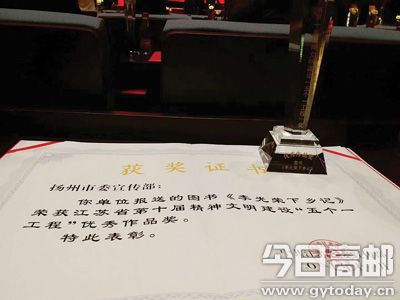 获奖证书
扬州市委宣传部：
你单位报送的图书《李光荣下乡记》
荣获江苏省第十届精神文明建设“五个一
工程”优秀作品奖。
特此表彰。
今日高邮
www.gytoday.cn